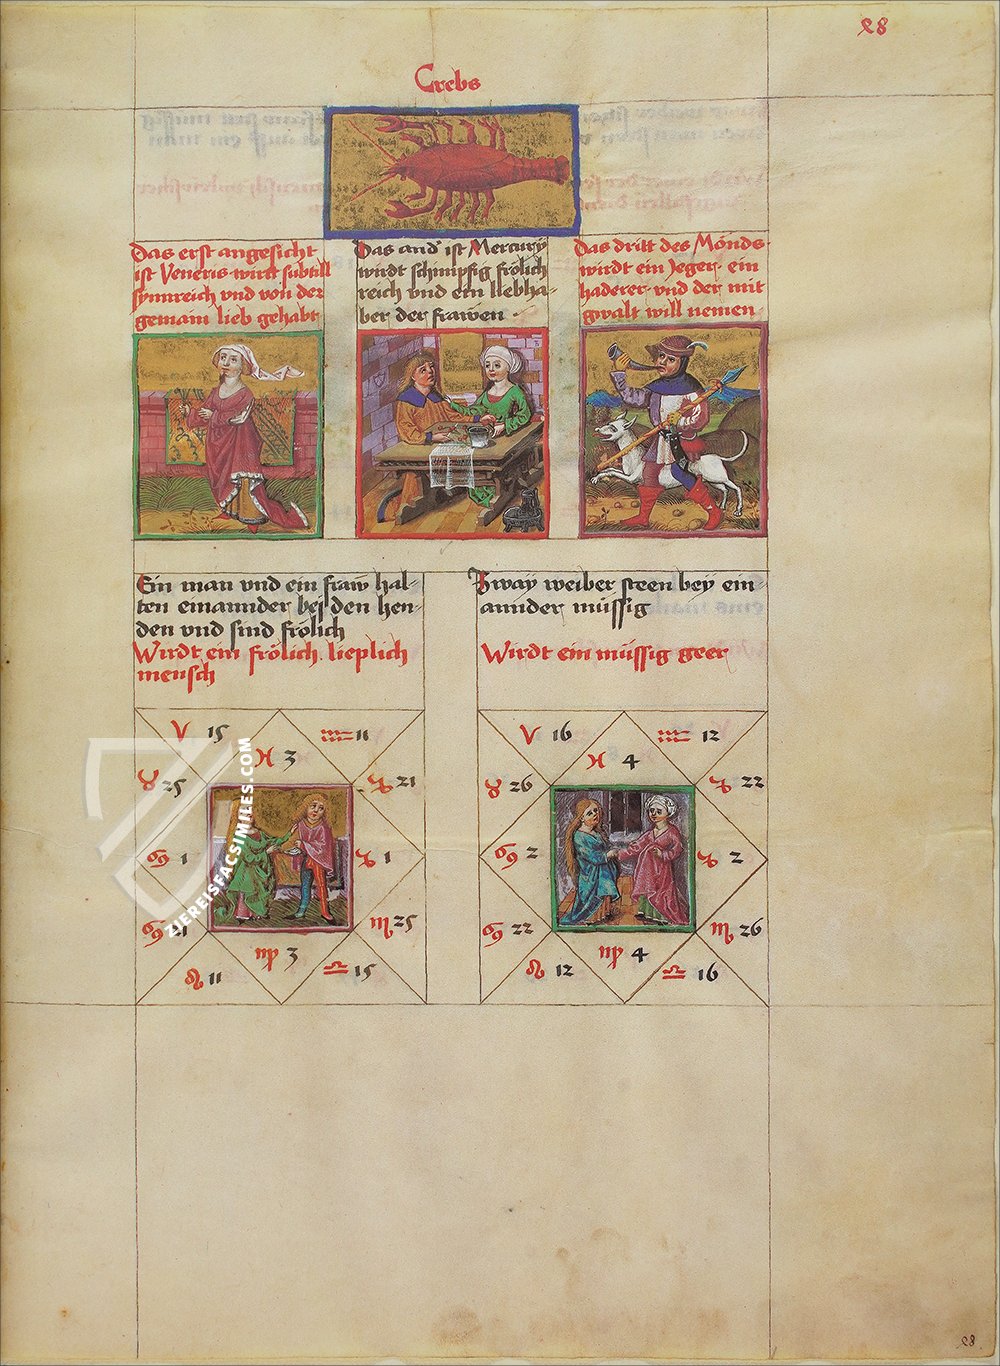 28
Crebs
Das erst angesicht
ist Veneris wirdt subtill
synnreich vnd von der
gemain lieb gehabt
Das and' ist Mercurÿ
wirdt schimpfig frölich
reich vnd ein liebha-
ber der frawen
Das dritt des Monds
wirdt ein Jeger ein
haderer vnd der mit
gwalt will nemen
Ein man vnd ein fraw hal-
ten einannder beÿ den hen-
den vnd sind frölich
Wirdt ein frölich lieplich
mensch
Zwaÿ weiber steen beÿ ein
annder müssig
Wirdt ein müssig geer
♈ 15
♓ 3
♒ 11
♉ 25
♑ 21
♋ 1
♑ 1
♋ 21
♏ 25
♌ 11
♍ 3
♎ 15
♈ 16
♓ 4
♒ 12
♉ 26
♑ 22
♋ 2
♑ 2
♋ 22
♏ 26
♌ 12
♍ 4
♎ 16
ZIEREISFACSIMILES.COM
28